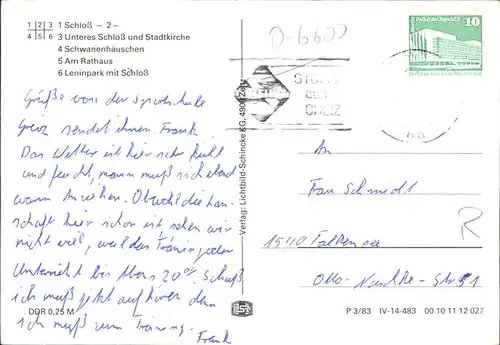 1 2 3 1 Schloß – 2 –
4 5 6 3 Unteres Schloß und Stadtkirche
4 Schwanenhäuschen
5 Am Rathaus
6 Leninpark mit Schloß
Grüße von der Sportschule
Greiz sendet ihnen Frank.
Das Wetter ist hier sehr kühl
und feucht, mann muß sich
warm Anziehen. Obwohl die Lan-
schaft hier schön ist sehen wir
nicht viel, weil das Träning oder
Unterricht bis Abens 20⁰⁰
ich muß jetzt aufhören den
ich muß zum Träning.
Frank
DDR 0,25 M
Verlag: Lichtbild-Schincke KG, 4900 Zeitz
D-6600
STOFFE
AUS
GREIZ
10
An
Frau Schmidt
Falkensee
Otto-
R
P 3/83 IV-14-483 00 10 11 12 027